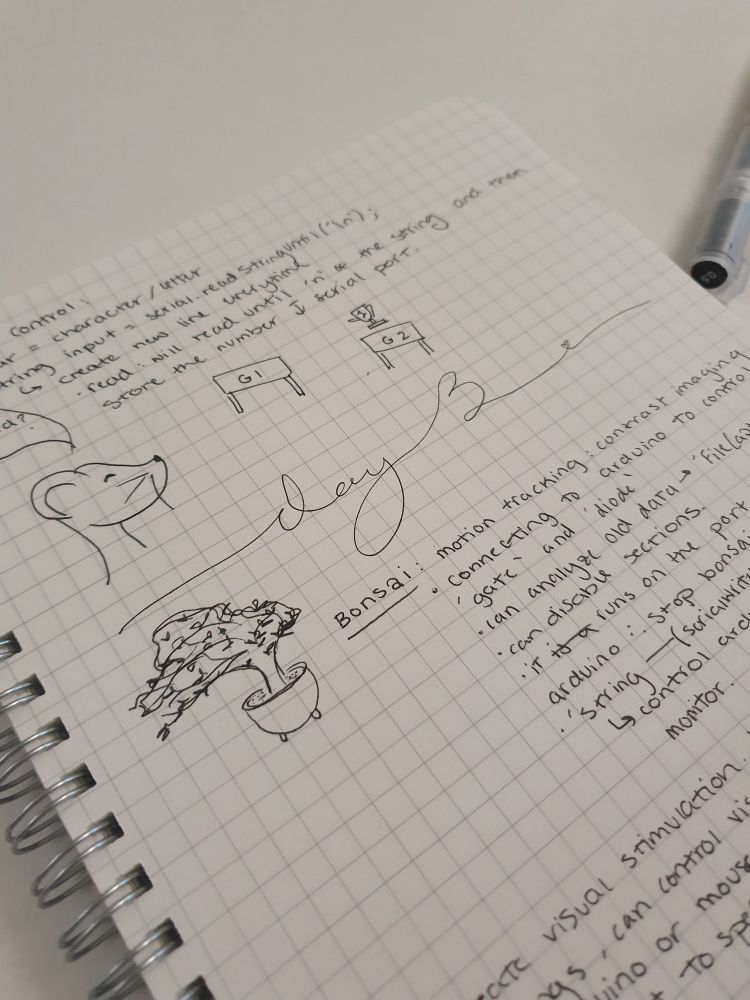 control:
= character/letter
string input = serial.readStringUntil('\n');
↳ create new line everytime
· read: will read until 'n' of the string and then
store the number ↓ serial port.
G1
G2
day 3
Bonsai: motion tracking: contrast imaging
· connecting to arduino to control
'gate' and 'diode'
· can analyze old data →
· can disable sections.
· it runs on the port
arduino ∴ stop bonsai
· 'string —
↳ control
monitor.
visual stimulation.
, can control
or mouse
to